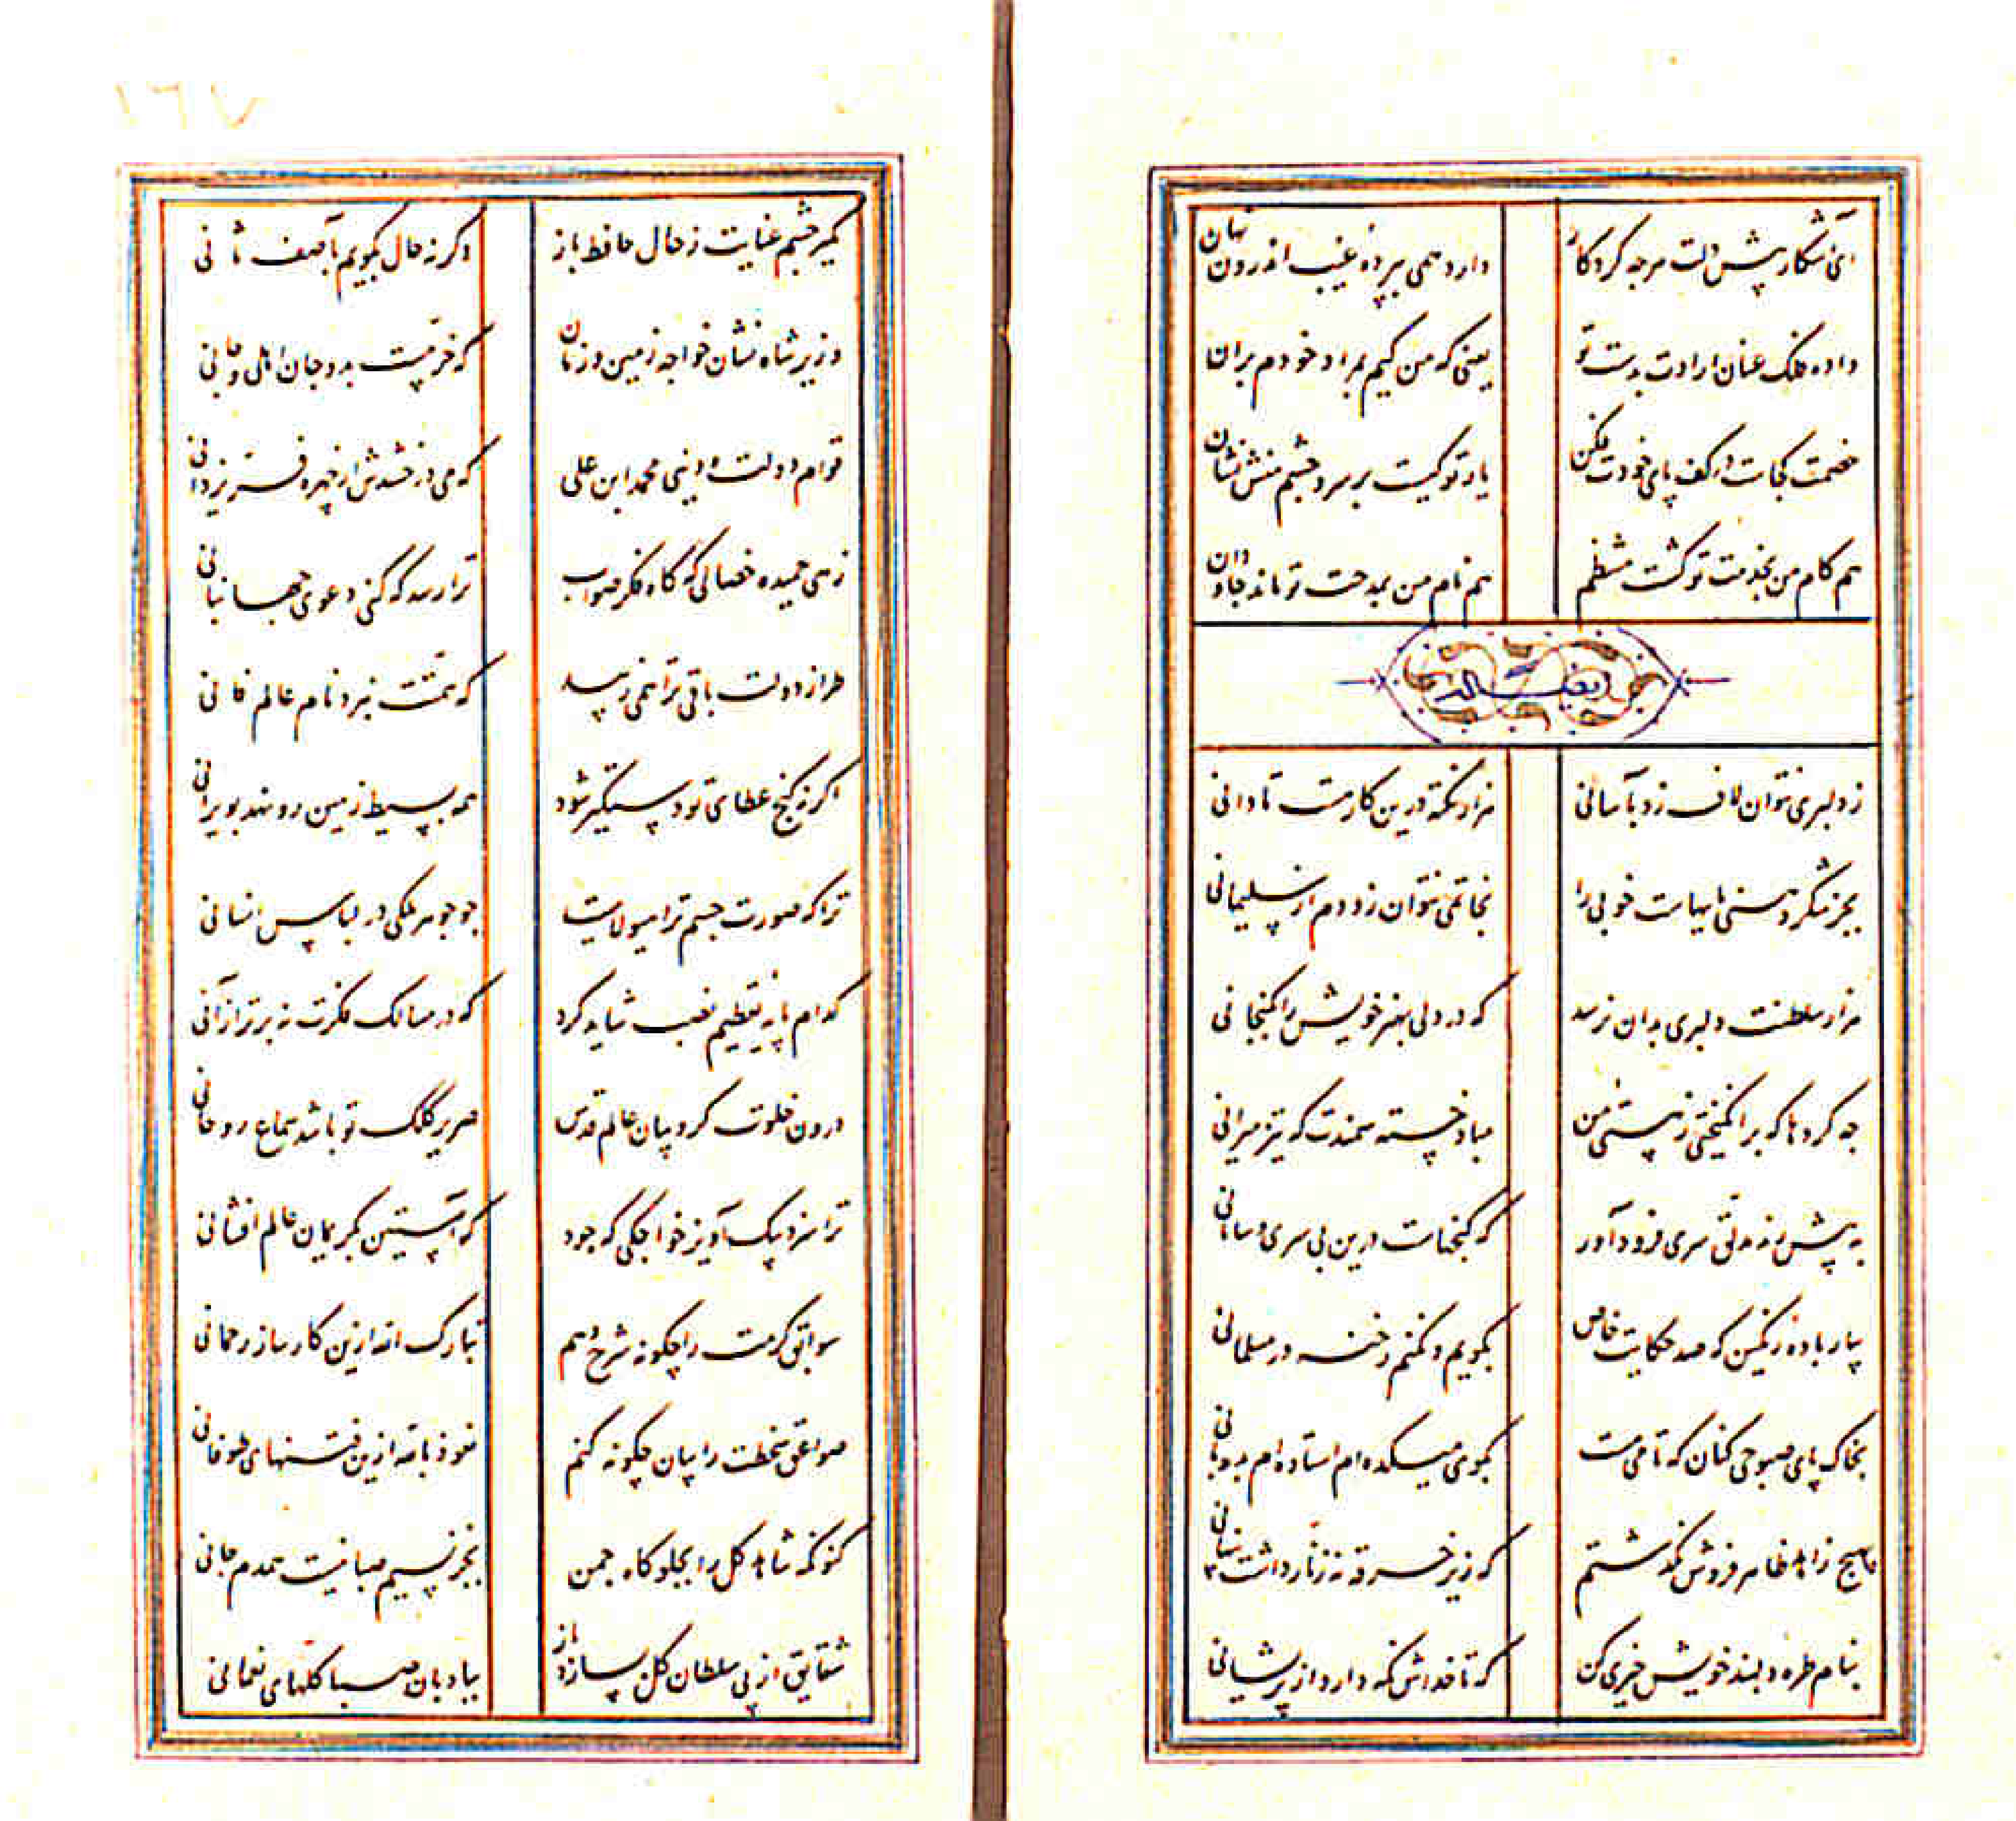 ای آشکار پیش دلت هرچه کردکار دارد همی بپرده غیب اندرون نهان
داده فلک عنان ارادت بدست تو یعنی که من کیم بمراد خودم بران
خصمت کجاست در کف پای خودت فکن یار تو کیست بر سر و چشم منش نشان
هم کام من بخدمت تو گشت منتظم هم نام من بمدحت تو ماند جاودان
ایضا له
ز دلبری نتوان لاف زد بآسانی هزار نکته درین کار هست تا دانی
بجز شکر دهنی مایهاست خوبی را بخاتمی نتوان زد دم از سلیمانی
هزار سلطنت دلبری بدان نرسد که در دلی بهنر خویش را بگنجانی
چه گردها که برانگیختی ز هستی من مباد خسته سمندت که تیز میرانی
به پیش رندان سری فرود آور که گنجهاست درین بی سری و سامانی
بیار باده رنگین که صد حکایت خاص بگویم و نکنم رخنه در مسلمانی
بخاک پای صبوحی کنان که تا من مست بکوی میکده ام استاده ام بدربانی
بهیچ زاهد ظاهر فروش نگذشتم که زیر خرقه نه زنار داشت پنهانی
بنام طره دلبند خویش خیری کن که تا خداش نگه دارد از پریشانی
۱۶۷
مگیر چشم عنایت ز حال حافظ باز وگرنه حال بگویم بآصف ثانی
وزیر شاه نشان خواجه زمین و زمان که خرمست بدو جان انسی و جانی
قوام دولت و دینی محمد ابن علی که می درخشدش از چهره فر یزدانی
زهی حمیده خصالی که گاه فکر صواب ترا رسد که کنی دعوی جهانبانی
طراز دولت باقی ترا همی زیبد که همتت نبرد نام عالم فانی
اگر نه گنج عطای تو دستگیر شود همه بسیط زمین رو نهد بویرانی
ترا که صورت جسم ترا هیولاییست چو جوهر ملکی در لباس انسانی
کدام پایه تعظیم نصب شاید کرد که در مسالک فکرت نه برتر از آنی
درون خلوت کروبیان عالم قدس صریر کلک تو باشد سماع روحانی
ترا سزد شکرآویز خواجگی که جود که آستین بکریمان عالم افشانی
سوابق کرمت را چگونه شرح دهم تبارک الله ازین کارساز رحمانی
صواعق سخطت را بیان چگونه کنم نعوذ بالله ازین فتنهای طوفانی
کنونکه شاهد گل را بجلوه گاه چمن بجز نسیم صبا نیست همدم جانی
شقایق از پی سلطان گل سپارد باز ببادبان صبا کلهای نعمانی